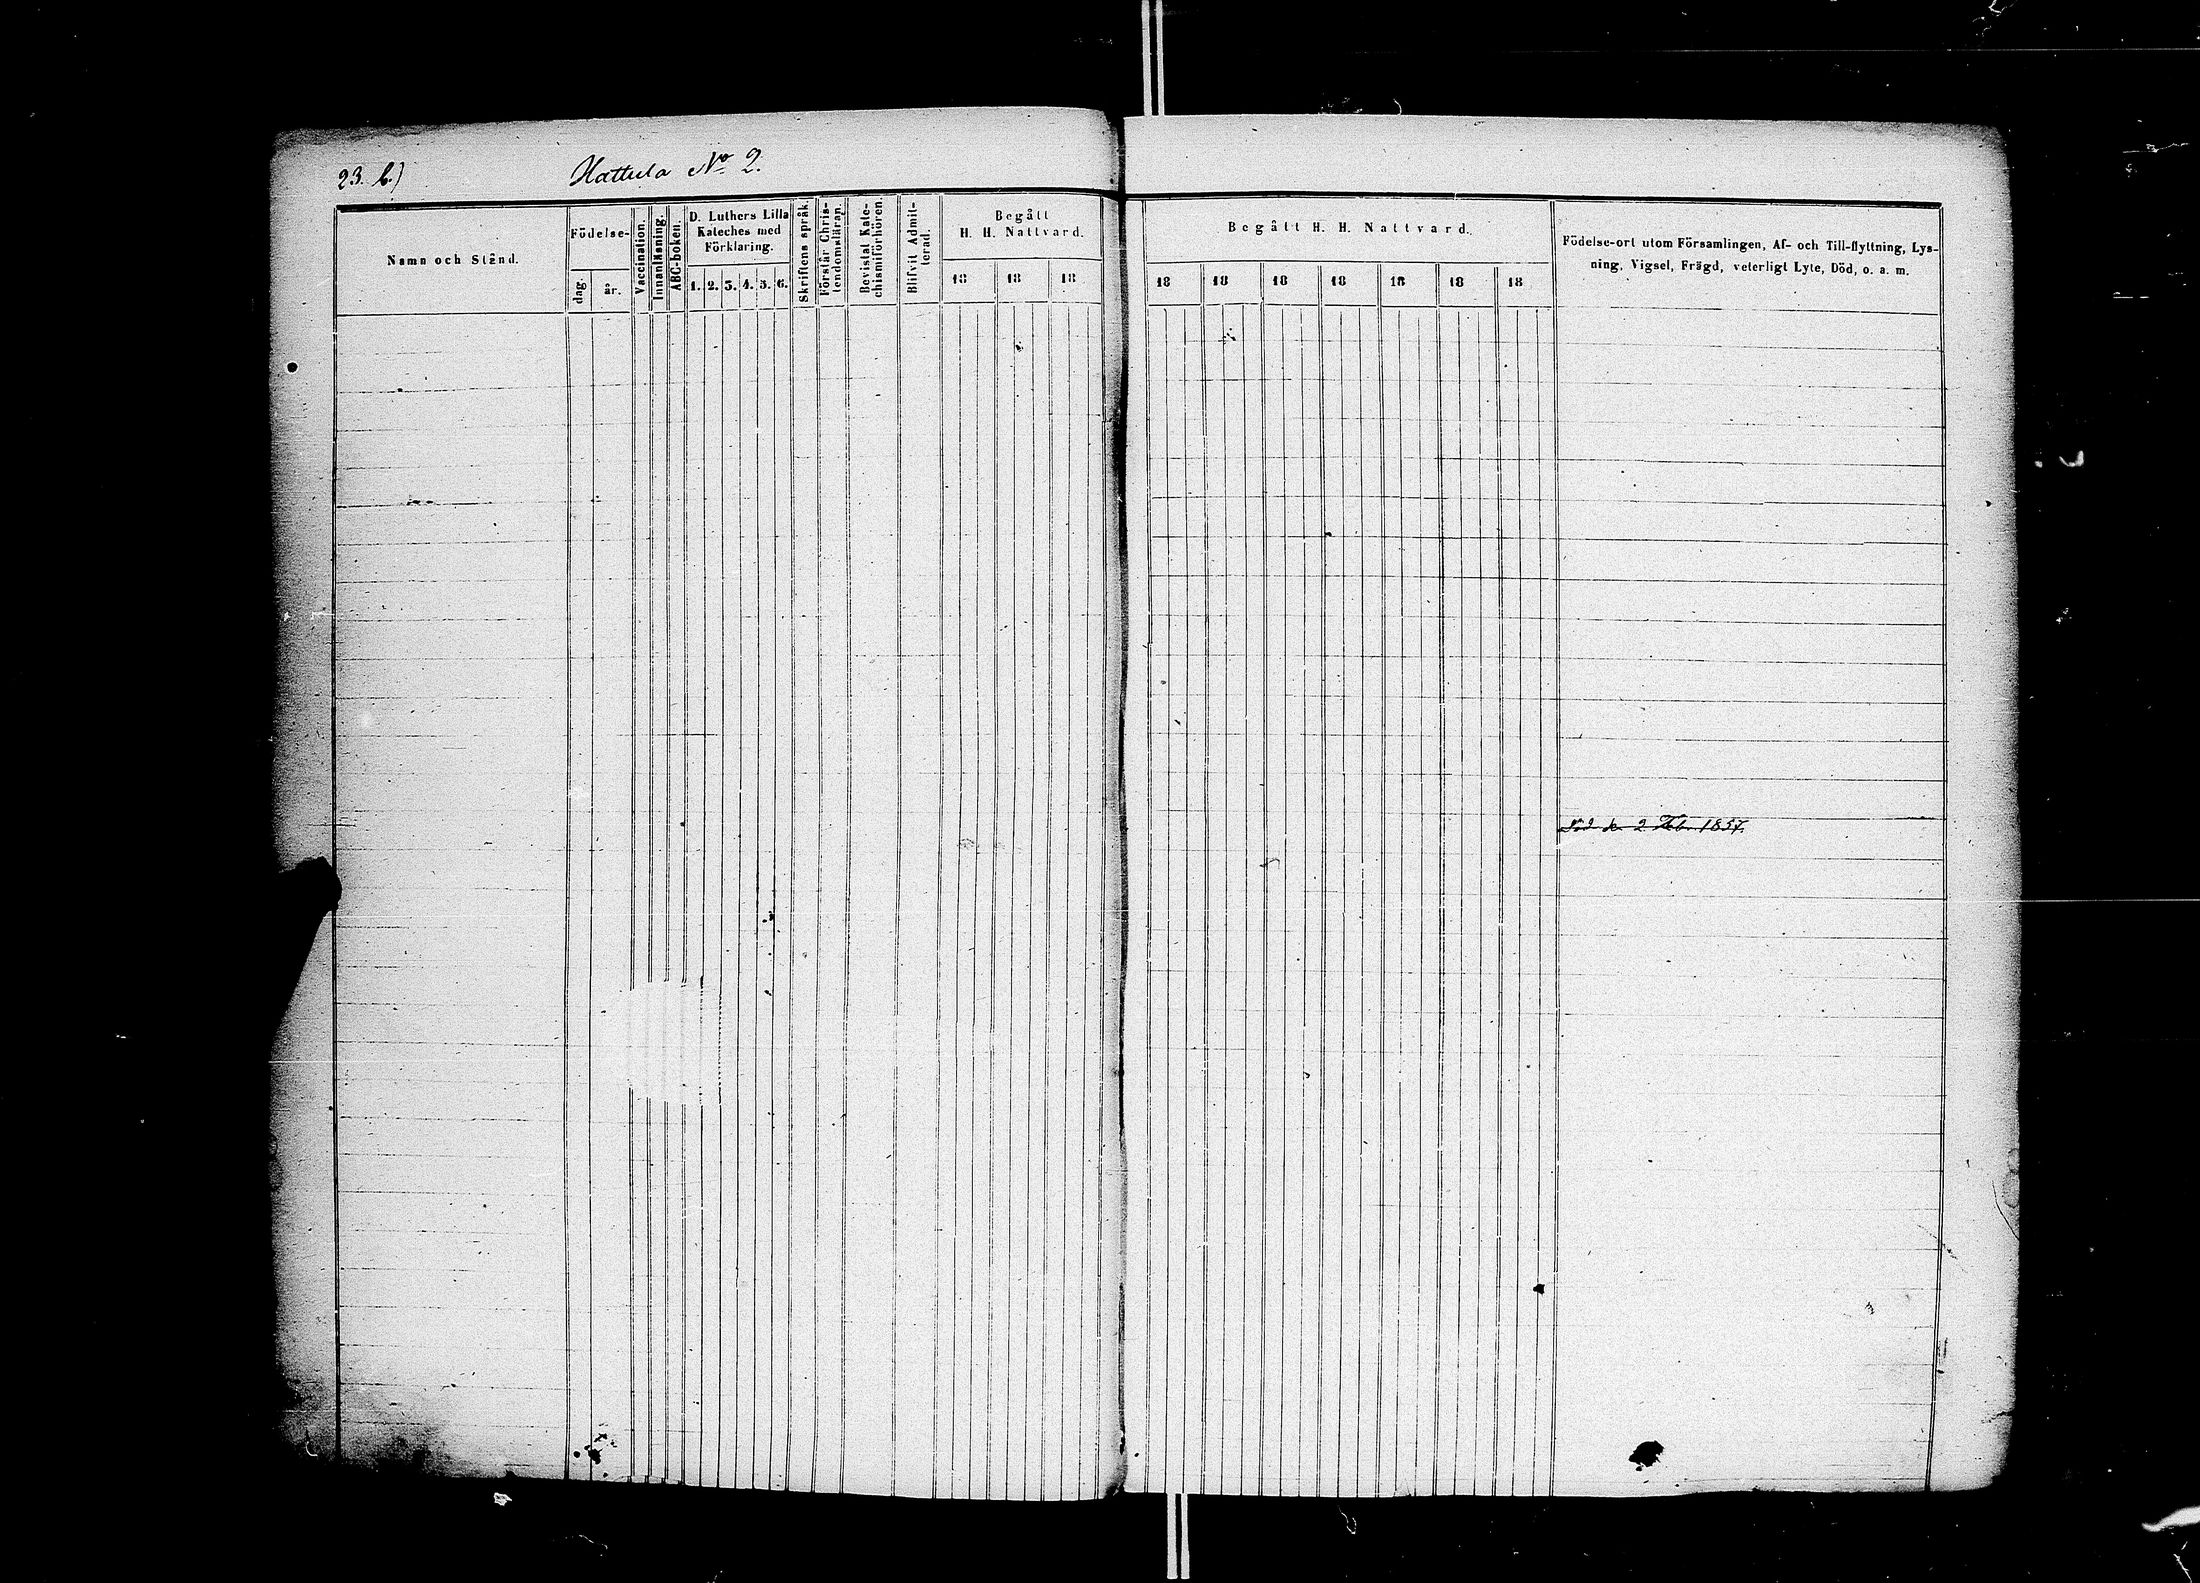 23. b.)
Hattula No 2.
Namn och Stånd.
Födelse-
dag.
år.
Vaccination.
Innanläsning.
ABC-boken.
D. Luthers Lilla
Kateches med
Förklaring.
1. 2. 3. 4. 5. 6.
Skriftens språk.
Förstår Chris-
tendomsläran.
Bevistat Kate-
chismiförhören.
Blifvit Admit-
terad.
Begått
H. H. Nattvard.
18 18 18
Begått H. H. Nattvard.
18 18 18 18 18 18 18
Födelse-ort utom Församlingen, Af- och Till-flyttning, Lys-
ning, Vigsel, Frägd, veterligt Lyte, Död, o. a. m.
Död de 2 Feb. 1857.